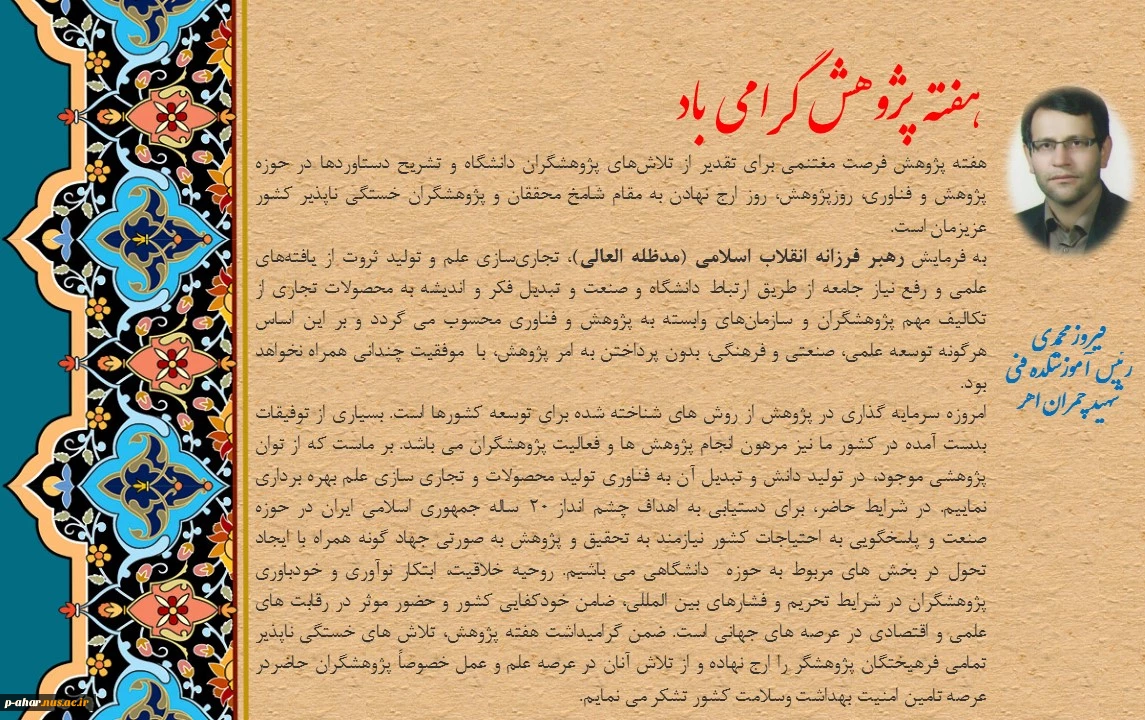 هفته پژوهش گرامی باد
هفته پژوهش فرصت مغتنمی برای تقدیر از تلاش‌های پژوهشگران دانشگاه و تشریح دستاوردها در حوزه
پژوهش و فناوری، روزپژوهش، روز ارج نهادن به مقام شامخ محققان و پژوهشگران خستگی ناپذیر کشور
عزیزمان است.
به فرمایش رهبر فرزانه انقلاب اسلامی (مدظله العالی)، تجاری‌سازی علم و تولید ثروت از یافته‌های
علمی و رفع نیاز جامعه از طریق ارتباط دانشگاه و صنعت و تبدیل فکر و اندیشه به محصولات تجاری از
تکالیف مهم پژوهشگران و سازمان‌های وابسته به پژوهش و فناوری محسوب می گردد و بر این اساس
هرگونه توسعه علمی، صنعتی و فرهنگی، بدون پرداختن به امر پژوهش، با موفقیت چندانی همراه نخواهد
بود.
امروزه سرمایه گذاری در پژوهش از روش های شناخته شده برای توسعه کشورها است. بسیاری از توفیقات
بدست آمده در کشور ما نیز مرهون انجام پژوهش ها و فعالیت پژوهشگران می باشد. بر ماست که از توان
پژوهشی موجود، در تولید دانش و تبدیل آن به فناوری تولید محصولات و تجاری سازی علم بهره برداری
نماییم. در شرایط حاضر، برای دستیابی به اهداف چشم انداز ۲۰ ساله جمهوری اسلامی ایران در حوزه
صنعت و پاسخگویی به احتیاجات کشور نیازمند به تحقیق و پژوهش به صورتی جهاد گونه همراه با ایجاد
تحول در بخش های مربوط به حوزه دانشگاهی می باشیم. روحیه خلاقیت، ابتکار نوآوری و خودباوری
پژوهشگران در شرایط تحریم و فشارهای بین المللی، ضامن خودکفایی کشور و حضور موثر در رقابت های
علمی و اقتصادی در عرصه های جهانی است. ضمن گرامیداشت هفته پژوهش، تلاش های خستگی ناپذیر
تمامی فرهیختگان پژوهشگر را ارج نهاده و از تلاش آنان در عرصه علم و عمل خصوصاً پژوهشگران حاضردر
عرصه تامین امنیت بهداشت وسلامت کشور تشکر می نمایم.
فیروزمحمدی
رئیس آموزشکده فنی
شهیدچمران اهر
p-ahar.nus.ac.ir